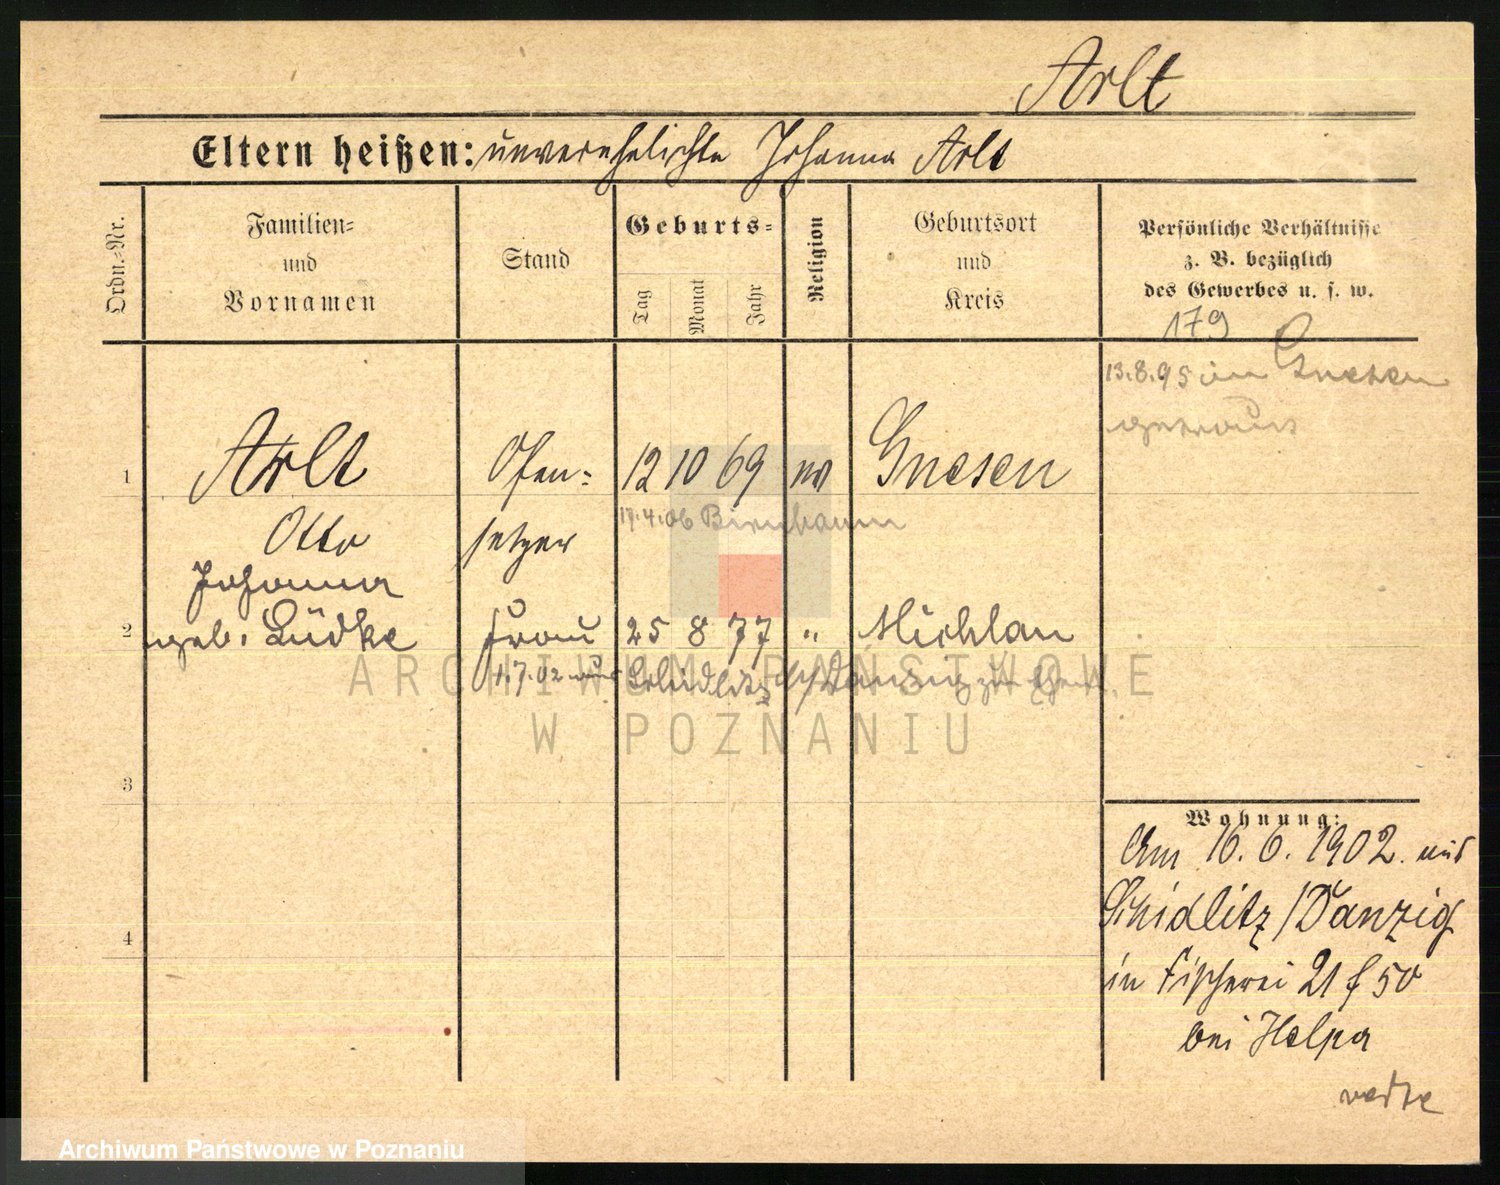 Arlt
Eltern heißen: unverehelichte Johanna Arlt
Ordn.-Nr.
Familien-
und
Vornamen
Stand
Geburts-
Tag
Monat
Jahr
Religion
Geburtsort
und
Kreis
Persönliche Verhältnisse
z. B. bezüglich
des Gewerbes u. s. w.
179
13.8.95 in Gnesen
getraut
1 Arlt Ofen- 12 10 69 Gnesen
Otto setzer 4.06 Birnbaum
Johanna
2 geb. Lüdke Frau 25 8 77 " Michlau
1.7.02 Schidlitz
3
4
Wohnung:
Am 16. 6. 1902 aus
Schidlitz / Danzig
in Fischerei 21 f 50
bei
ARCHIWUM PAŃSTWOWE
W POZNANIU
Archiwum Państwowe w Poznaniu